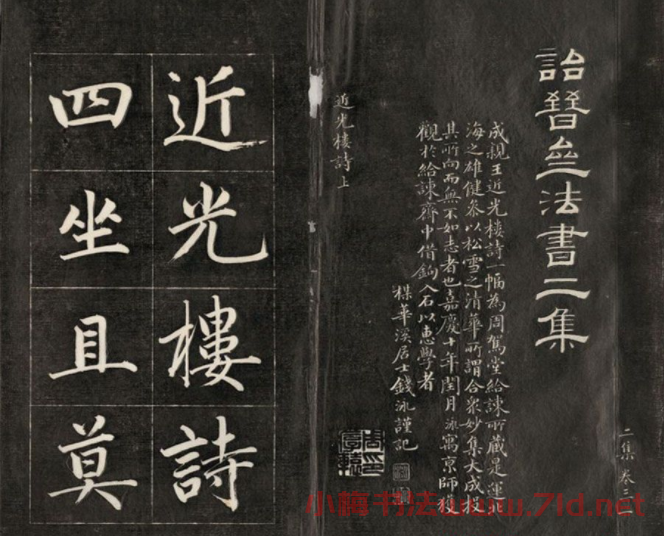 詒晉齋法書二集
二集卷三
成親王近光樓詩一幅為周駕堂給諫所藏是運北
海之雄健參以松雪之清華所謂合眾妙集大成投
其所向而無不如志者也嘉慶十年閏月泳寓京師獲
觀於給諫齋中借鉤入石以惠學者
楳華溪居士錢泳謹記
近光樓詩上
近光樓詩
四坐且莫
小蕴书法www.7ld.net